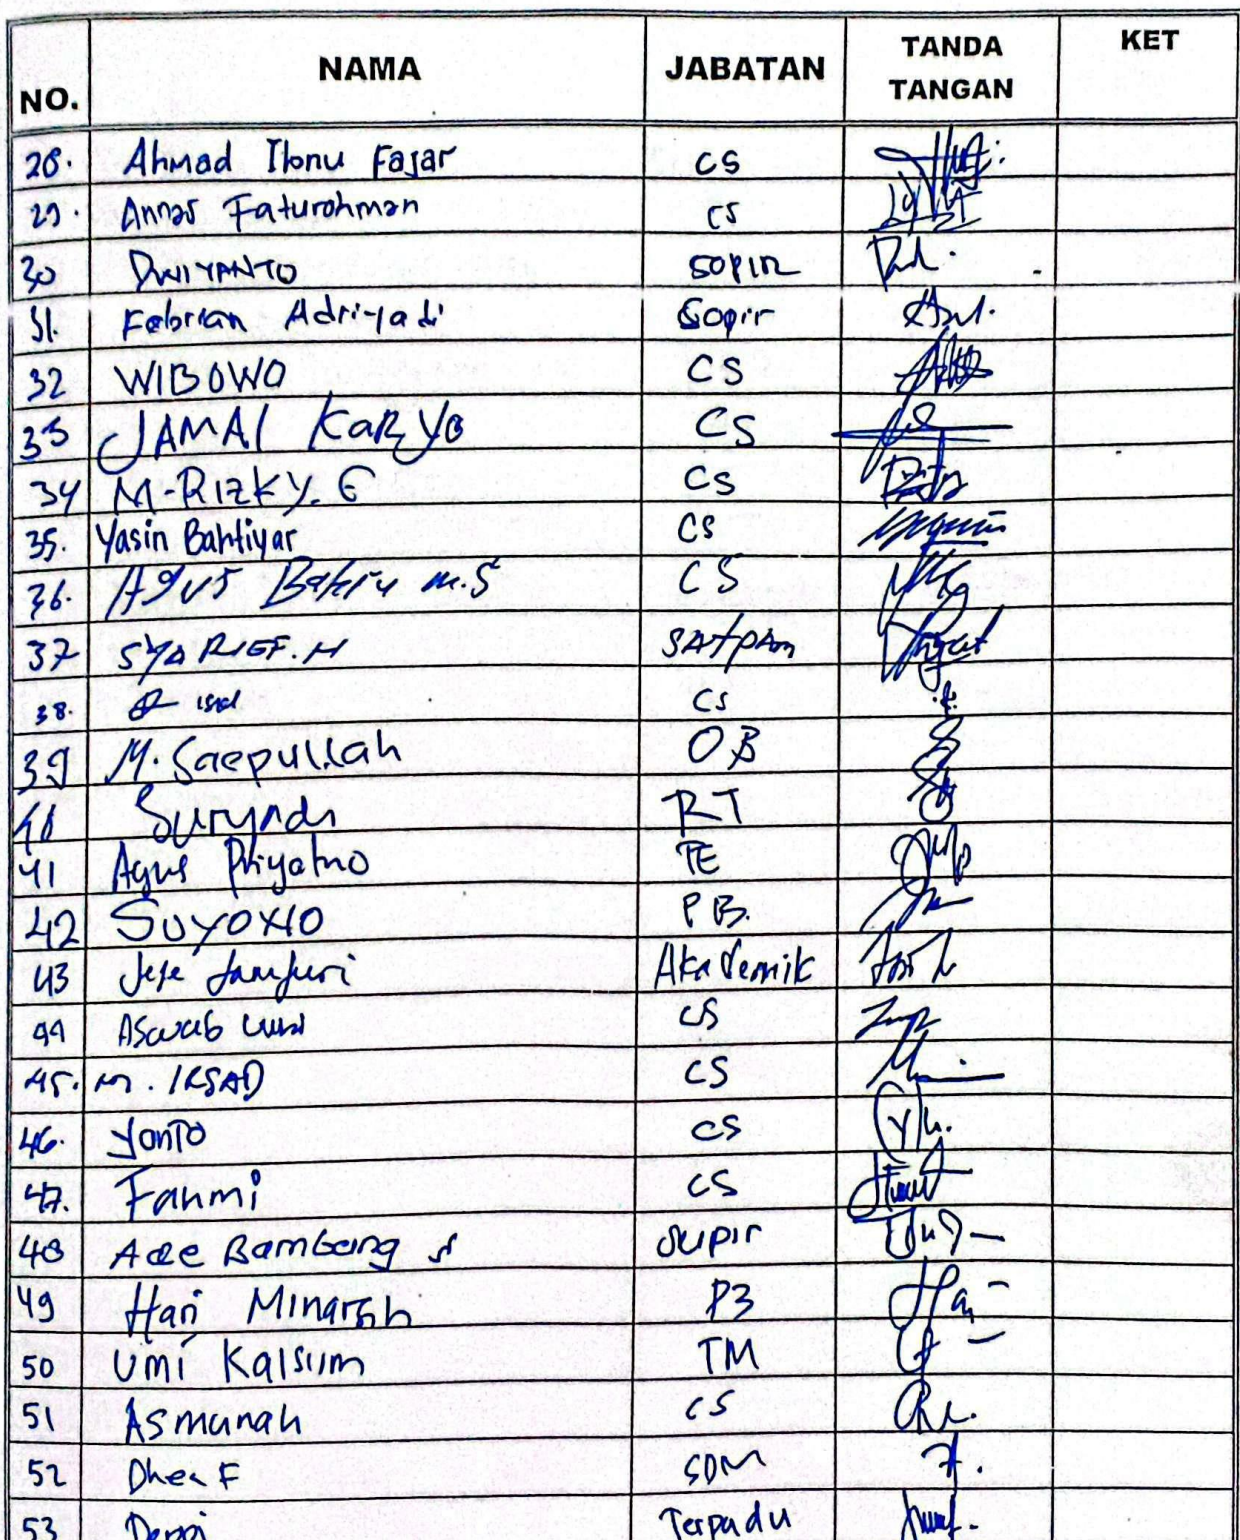 NO. NAMA JABATAN TANDA TANGAN KET
28. Ahmad Ibnu Fajar CS
29. Annas Faturohman CS
30 DWIYANTO SOPIR
31. Febrian Adriyadi Sopir
32 WIBOWO CS
33 JAMAL KARYO CS
34 M-RIZKY. G CS
35. Yasin Bahtiyar CS
36. Agus Bakru M.S CS
37 SYARIEF. H SATPAM
38. CS
39 M. Saepullah OB
40 Suryadi RT
41 Agus Priyatno TE
42 SUYONO PB.
43 Akademik
44 CS
45. M. IRSAD CS
46. Yanto CS
47. Fahmi CS
48 Ade Bambang S Supir
49 Hari Minarsih P3
50 Umi Kalsum TM
51 Asmunah CS
52 Dhea F SDM
53 Terpadu